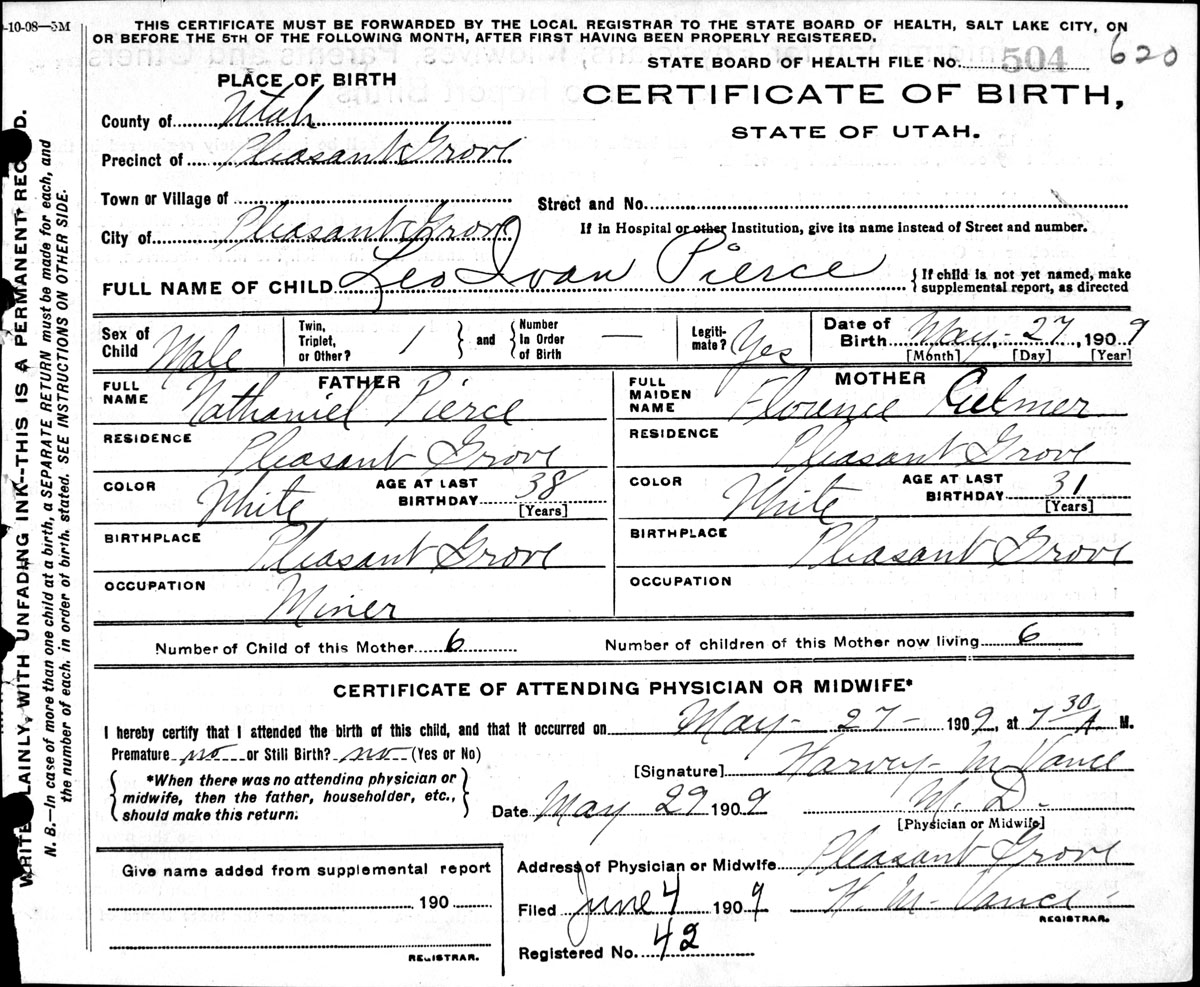 -10-08—5M
THIS CERTIFICATE MUST BE FORWARDED BY THE LOCAL REGISTRAR TO THE STATE BOARD OF HEALTH, SALT LAKE CITY, ON
OR BEFORE THE 5TH OF THE FOLLOWING MONTH, AFTER FIRST HAVING BEEN PROPERLY REGISTERED.
STATE BOARD OF HEALTH FILE NO. 504 620
PLACE OF BIRTH
CERTIFICATE OF BIRTH,
STATE OF UTAH.
County of Utah
Precinct of Pleasant Grove
Town or Village of
Street and No.
City of Pleasant Grove
If in Hospital or other Institution, give its name instead of Street and number.
FULL NAME OF CHILD Leo Ivan Pierce
{ If child is not yet named, make
supplemental report, as directed
Sex of Child Male
Twin, Triplet, or Other? 1 } and { Number In Order of Birth —
Legiti-mate? Yes
Date of Birth May- 27, 1909
[Month] [Day] [Year]
FATHER
FULL NAME Nathaniel Pierce
RESIDENCE Pleasant Grove
COLOR White AGE AT LAST BIRTHDAY 38
[Years]
BIRTHPLACE Pleasant Grove
OCCUPATION Miner
MOTHER
FULL MAIDEN NAME Florence
RESIDENCE Pleasant Grove
COLOR White AGE AT LAST BIRTHDAY 31
[Years]
BIRTHPLACE Pleasant Grove
OCCUPATION
Number of Child of this Mother 6 Number of children of this Mother now living 6
CERTIFICATE OF ATTENDING PHYSICIAN OR MIDWIFE*
I hereby certify that I attended the birth of this child, and that it occurred on May- 27- 1909, at 7 30 A M.
Premature no or Still Birth? no (Yes or No)
[Signature] Harvey M Vance
{ *When there was no attending physician or
midwife, then the father, householder, etc.,
should make this return. }
Date May 29 1909 M. D.
[Physician or Midwife]
Give name added from supplemental report
190
REGISTRAR.
Address of Physician or Midwife Pleasant Grove
Filed June 4 1909 H. M. Vance
REGISTRAR.
Registered No. 42
WRITE PLAINLY, WITH UNFADING INK--THIS IS A PERMANENT RECORD.
N. B.—In case of more than one child at a birth, a SEPARATE RETURN must be made for each, and
the number of each, in order of birth, stated. SEE INSTRUCTIONS ON OTHER SIDE.